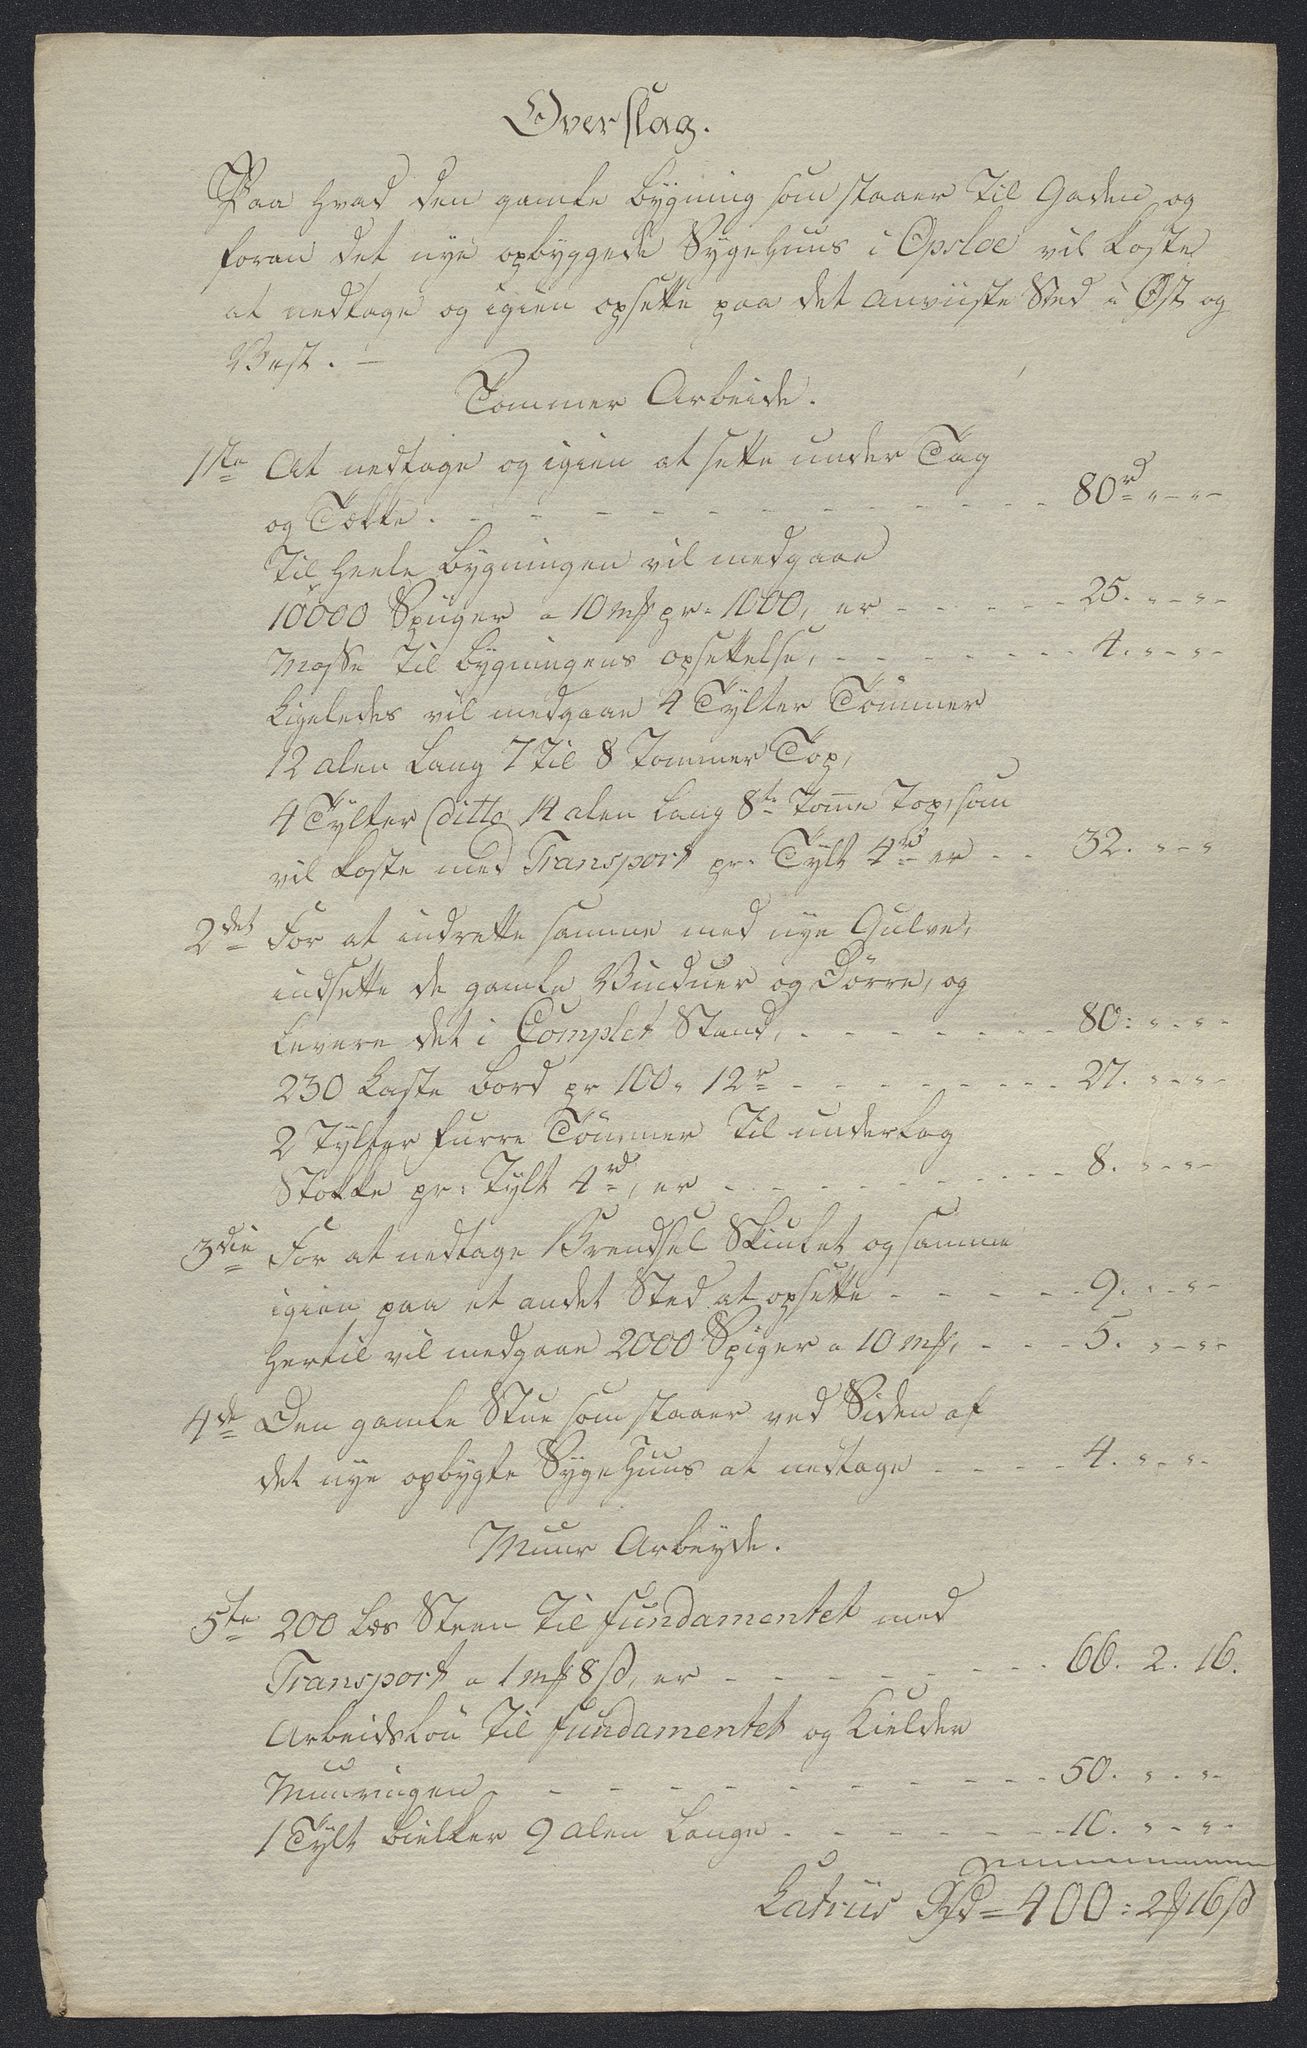 Overslag.
Paa hvad den gamle bygning som staaer til Gaden og
foran det nye opbyggede Sygehuus i Opsloe vil koste
at nedtage og igien opsette paa det anviiste Sted i Øst og
Vest. —
Tømmer Arbeide.
1ste At nedtage og igien at sette under Tag
og Tække. - - - - - - - - - - - 80rd „-„-
Til heele bygningen vil medgaae
10000 Spiiger a 10 mk pr. 1000, er - - - - - 25. „-„-
Mosse til bygningens opsettelse, - - - - - - - 4. „-„-
Ligeledes vil medgaae 4 Tylter Tömmer
12 alen lang 7 til 8 Tommer Top,
4 Tylter ditto 14 alen lang 8te Tomme Top, som
vil koste med Transport pr. Tylt 4rd er - - 32. „-„
2det For at indrette samme med nye Gulve,
indsette de gamle Vinduer og Dörre, og
levere det i Complet Stand, - - - - - - - 80: „-„-
230 Kaste bord pr 100. 12rd - - - - - - - - 27. „-„-
2 Tylter furre Tömmer til underlag
Stokke pr. Tylt 4rd, er - - - - - - - - - 8. „-„-
3die For at nedtage Brendsel Skiulet og samme
igien paa et andet Sted at opsette - - - - - 9. „-„-
hertil vil medgaae 2000 Spiger a 10 mk, - - - 5. „-„-
4de Den gamle Stue som staaer ved Siden af
det nye opbygte Sygehuus at nedtage - - - - 4. „-„-
Muur Arbeyde.
5te 200 Læs Steen til fundamentet med
Transport a 1 mk 8 ß, er - - - - - - - - 66. 2. 16.
Arbeidslön til fundamentet og Kielder
Muuringen - - - - - - - - - - 50. „-„-
1 Tylt bielker 9 alen lange - - - - - - - 10. „-„-
Latriis Rd = 400: 2 mk 16 ß